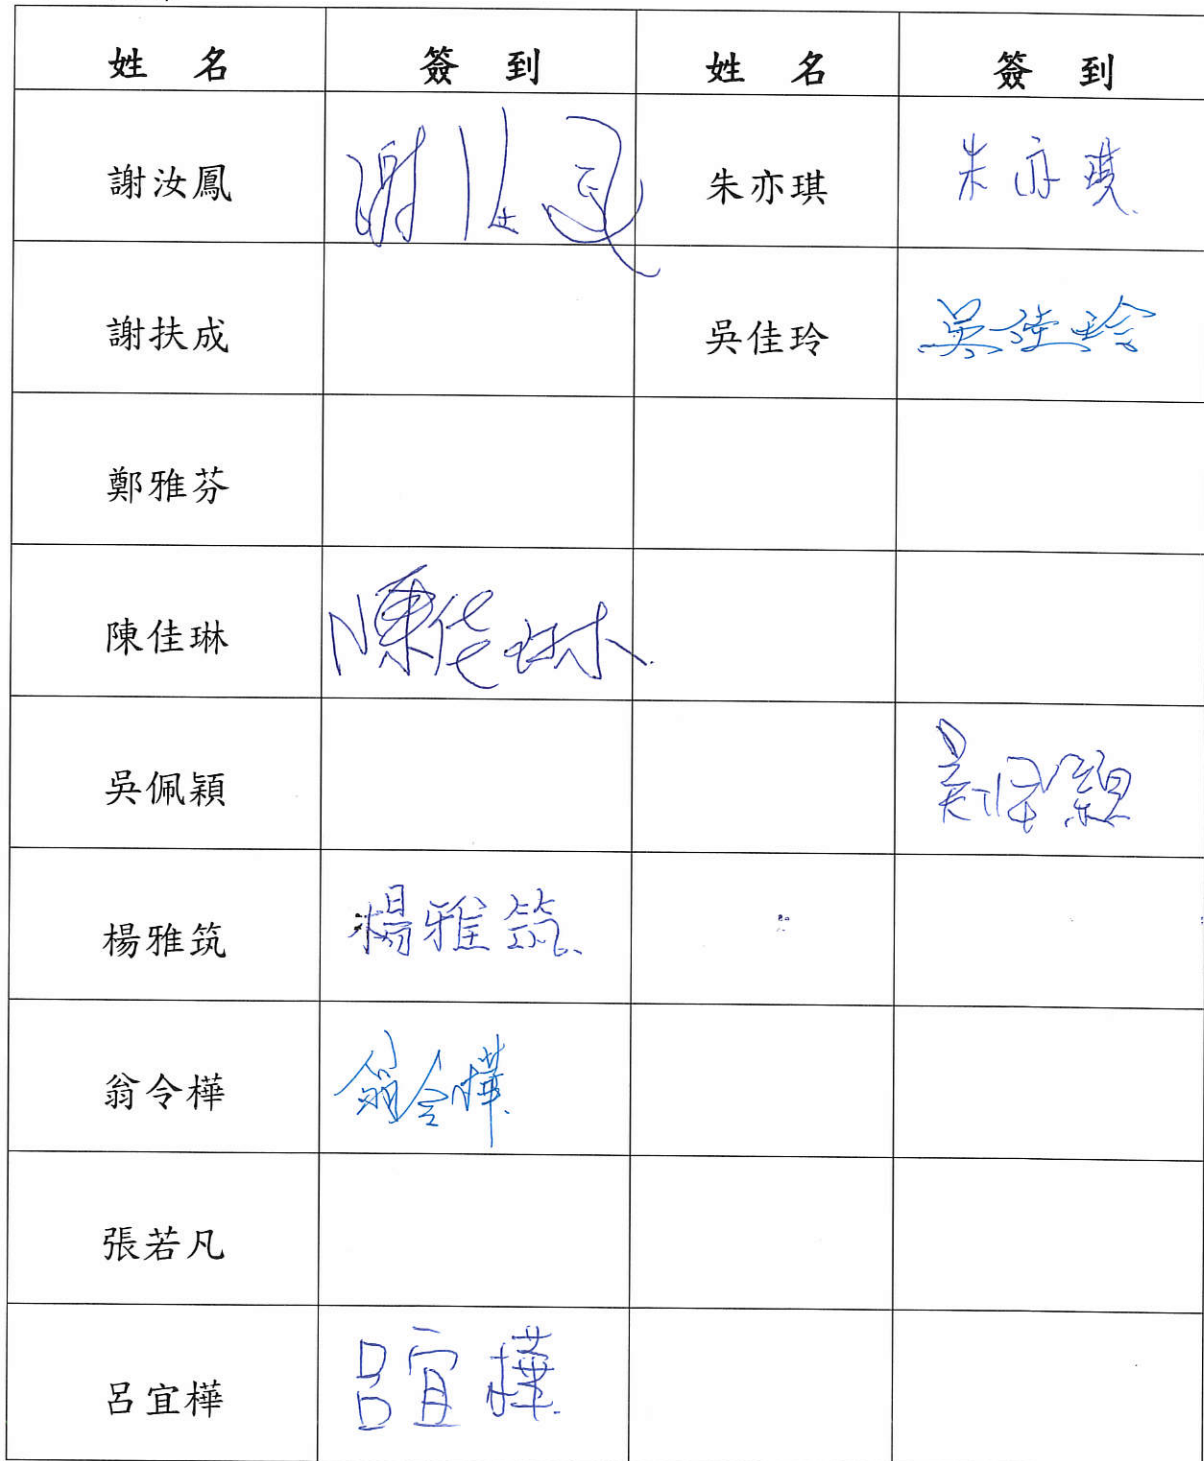 姓 名 簽 到 姓 名 簽 到
謝汝鳳 謝汝鳳 朱亦琪 朱亦琪
謝扶成 吳佳玲 吳佳玲
鄭雅芬
陳佳琳 陳佳琳
吳佩穎 吳佩穎
楊雅筑 楊雅筑
翁令樺 翁令樺
張若凡
呂宜樺 呂宜樺